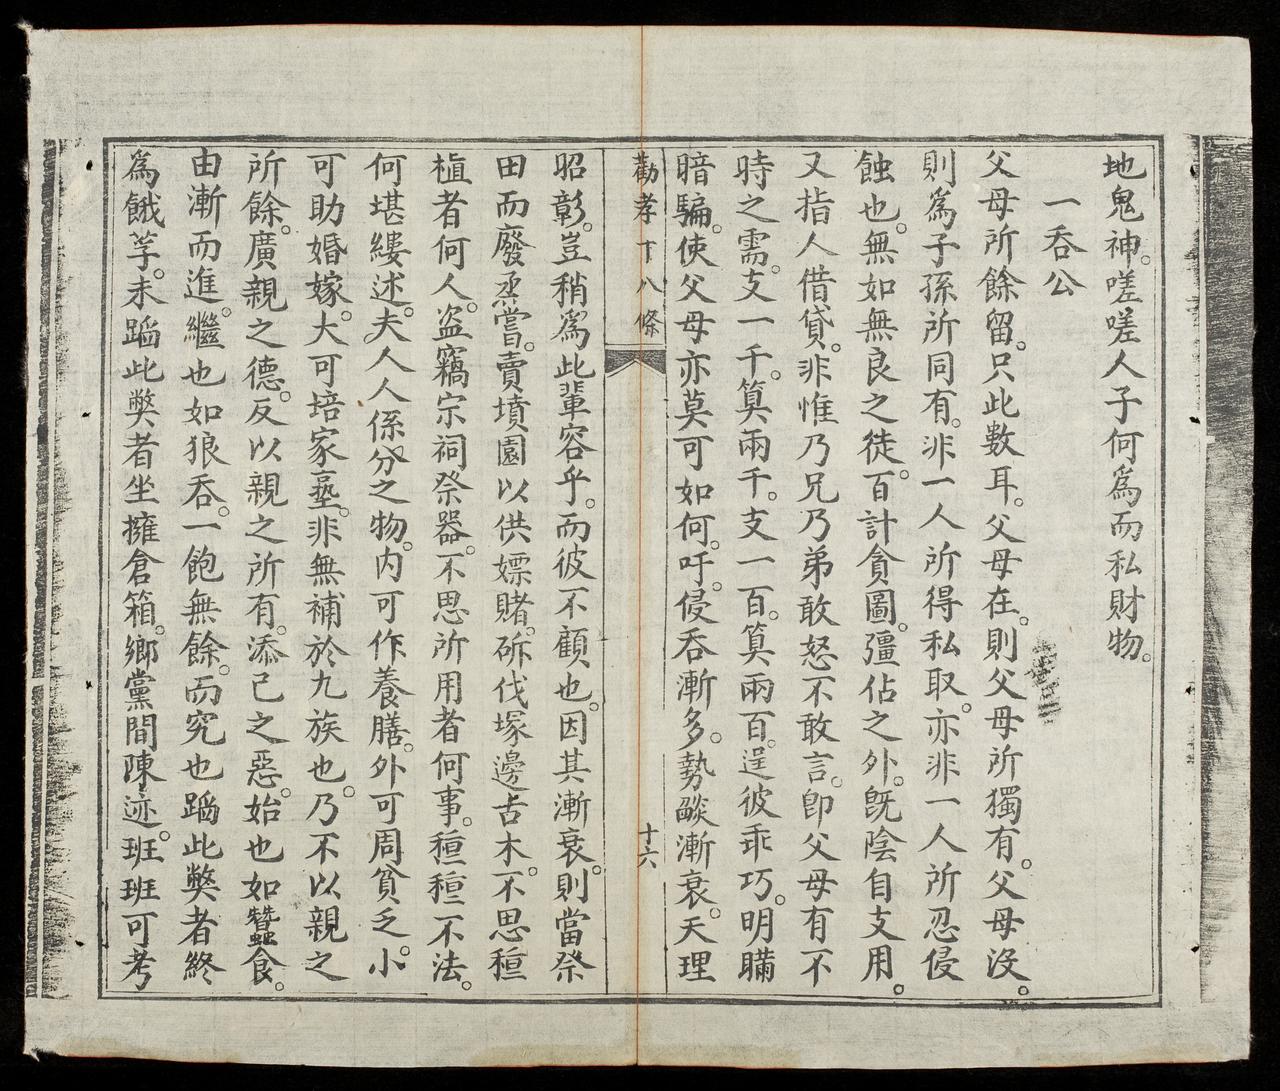 地鬼神。嗟嗟人子何爲而私財物。
一吞公
父母所餘留。只此數耳。父母在。則父母所獨有。父母沒。
則爲子孫所同有。非一人所得私取。亦非一人所忍侵
蝕也。無如無良之徒。百計貪圖。彊佔之外。旣陰自支用。
又指人借貸。非惟乃兄乃弟敢怒不敢言。卽父母有不
時之需。支一千。算兩千。支一百。算兩百。逞彼乖巧。明瞞
暗騙。使父母亦莫可如何。吁。侵吞漸多。勢燄漸衰。天理
勸孝十八條
十六
昭彰。豈稍爲此輩容乎。而彼不顧也。因其漸衰。則當祭
田而廢烝嘗。賣墳園以供嫖賭。斫伐塚邊古木。不思種
植者何人。盜竊宗祠祭器。不思所用者何事。種種不法。
何堪縷述。夫人人係分之物。内可作養膳。外可周貧乏。小
可助婚嫁。大可培家塾。非無補於九族也。乃不以親之
所餘。廣親之德。反以親之所有。添己之惡。始也如蠶食。
由漸而進。繼也如狼吞。一飽無餘。而究也蹈此獘者終
爲餓莩。未蹈此獘者坐擁倉箱。鄉黨間陳迹。班班可考